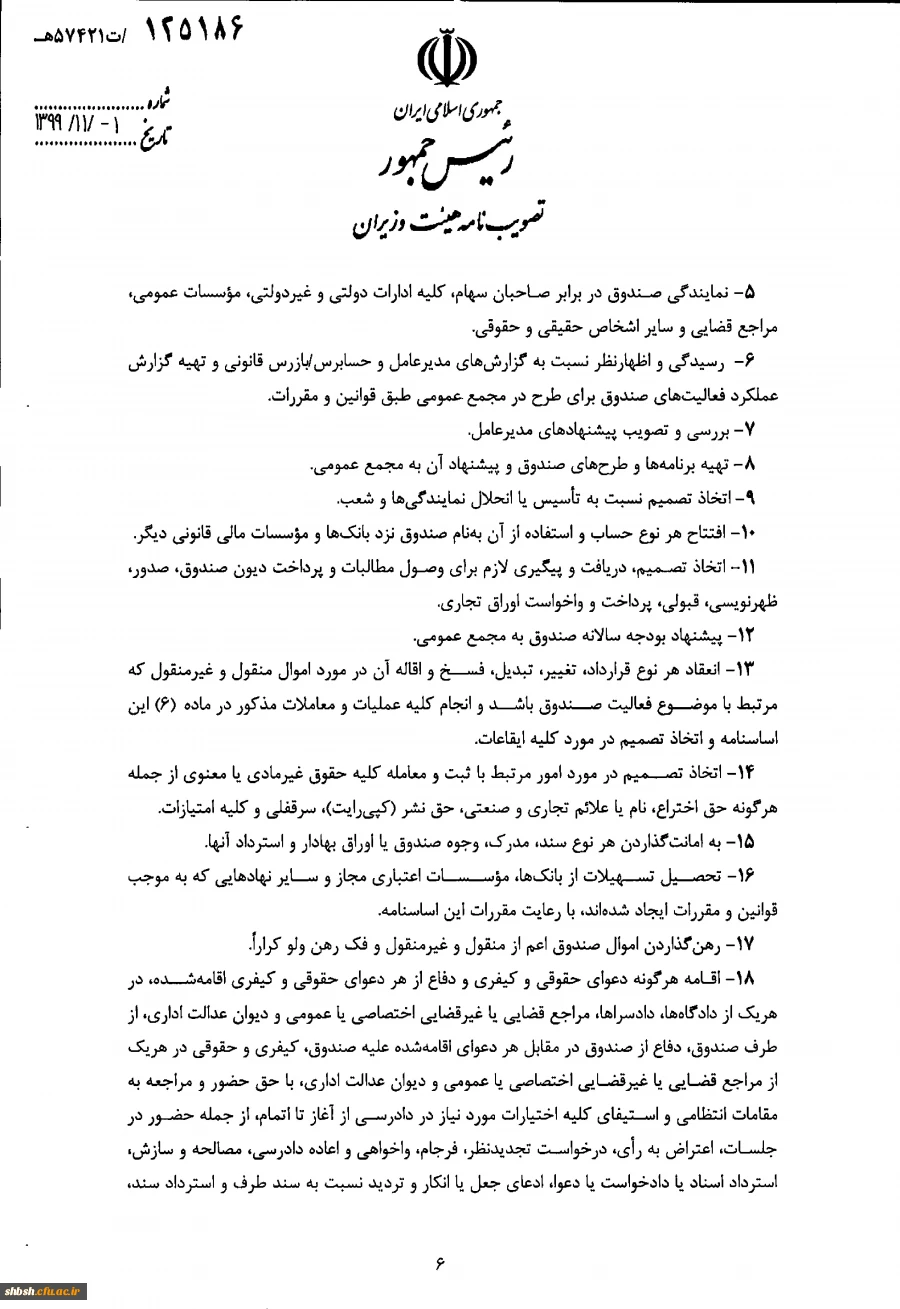 ۱۲۵۱۸۶ /ت۵۷۴۲۱هـ
شماره
تاریخ ۱۳۹۹/۱۱/۰۱
جمهوری اسلامی ایران
رئیس جمهور
تصویب نامه هیئت وزیران
۵- نمایندگی صندوق در برابر صاحبان سهام، کلیه ادارات دولتی و غیردولتی، مؤسسات عمومی،
مراجع قضایی و سایر اشخاص حقیقی و حقوقی.
۶- رسیدگی و اظهارنظر نسبت به گزارش‌های مدیرعامل و حسابرس/بازرس قانونی و تهیه گزارش
عملکرد فعالیت‌های صندوق برای طرح در مجمع عمومی طبق قوانین و مقررات.
۷- بررسی و تصویب پیشنهادهای مدیرعامل.
۸- تهیه برنامه‌ها و طرح‌های صندوق و پیشنهاد آن به مجمع عمومی.
۹- اتخاذ تصمیم نسبت به تأسیس یا انحلال نمایندگی‌ها و شعب.
۱۰- افتتاح هر نوع حساب و استفاده از آن به‌نام صندوق نزد بانک‌ها و مؤسسات مالی قانونی دیگر.
۱۱- اتخاذ تصمیم، دریافت و پیگیری لازم برای وصول مطالبات و پرداخت دیون صندوق، صدور،
ظهرنویسی، قبولی، پرداخت و واخواست اوراق تجاری.
۱۲- پیشنهاد بودجه سالانه صندوق به مجمع عمومی.
۱۳- انعقاد هر نوع قرارداد، تغییر، تبدیل، فسخ و اقاله آن در مورد اموال منقول و غیرمنقول که
مرتبط با موضوع فعالیت صندوق باشد و انجام کلیه عملیات و معاملات مذکور در ماده (۶) این
اساسنامه و اتخاذ تصمیم در مورد کلیه ایقاعات.
۱۴- اتخاذ تصمیم در مورد امور مرتبط با ثبت و معامله کلیه حقوق غیرمادی یا معنوی از جمله
هرگونه حق اختراع، نام یا علائم تجاری و صنعتی، حق نشر (کپی‌رایت)، سرقفلی و کلیه امتیازات.
۱۵- به امانت‌گذاردن هر نوع سند، مدرک، وجوه صندوق یا اوراق بهادار و استرداد آنها.
۱۶- تحصیل تسهیلات از بانک‌ها، مؤسسات اعتباری مجاز و سایر نهادهایی که به موجب
قوانین و مقررات ایجاد شده‌اند، با رعایت مقررات این اساسنامه.
۱۷- رهن‌گذاردن اموال صندوق اعم از منقول و غیرمنقول و فک رهن ولو کراراً.
۱۸- اقامه هرگونه دعوای حقوقی و کیفری و دفاع از هر دعوای حقوقی و کیفری اقامه‌شده، در
هریک از دادگاه‌ها، دادسراها، مراجع قضایی یا غیرقضایی اختصاصی یا عمومی و دیوان عدالت اداری، از
طرف صندوق، دفاع از صندوق در مقابل هر دعوای اقامه‌شده علیه صندوق، کیفری و حقوقی در هریک
از مراجع قضایی یا غیرقضایی اختصاصی یا عمومی و دیوان عدالت اداری، با حق حضور و مراجعه به
مقامات انتظامی و استیفای کلیه اختیارات مورد نیاز در دادرسی از آغاز تا اتمام، از جمله حضور در
جلسات، اعتراض به رأی، درخواست تجدیدنظر، فرجام، واخواهی و اعاده دادرسی، مصالحه و سازش،
استرداد اسناد یا دادخواست یا دعوا، ادعای جعل یا انکار و تردید نسبت به سند طرف و استرداد سند،
۶
shbsh.cfu.ac.ir